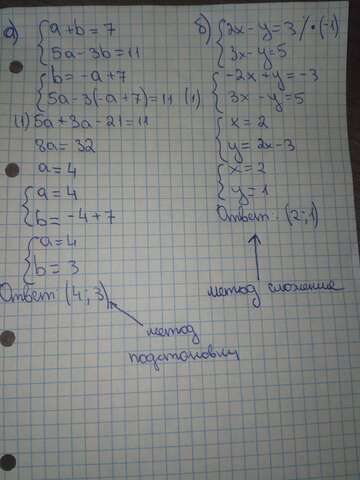 а) { a + b = 7
5a - 3b = 11
{ b = -a + 7
5a - 3(-a + 7) = 11 (1)
(1) 5a + 3a - 21 = 11
8a = 32
a = 4
{ a = 4
b = -4 + 7
{ a = 4
b = 3
Ответ: (4; 3)
метод
подстановки
б) { 2x - y = 3 / · (-1)
3x - y = 5
{ -2x + y = -3
3x - y = 5
{ x = 2
y = 2x - 3
{ x = 2
y = 1
Ответ: (2; 1)
метод сложение